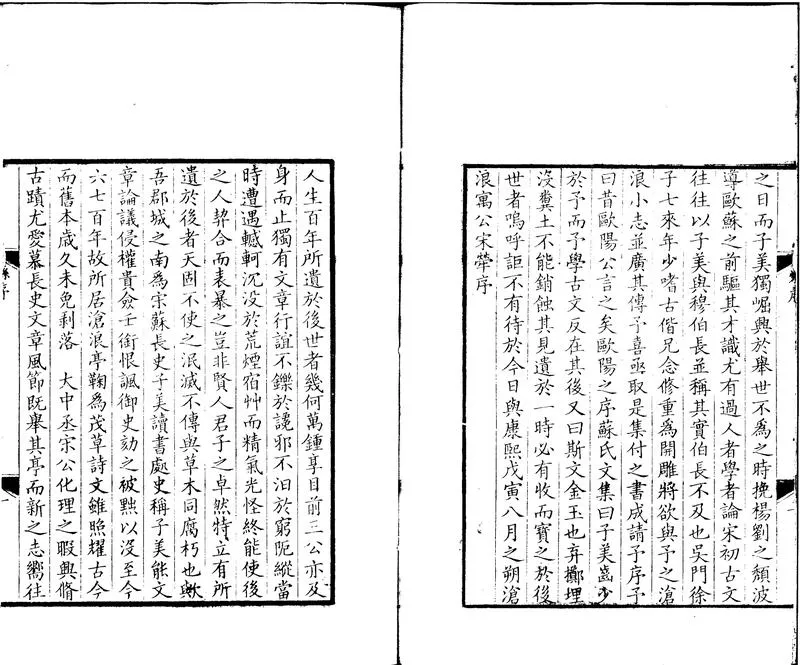 之日而子美獨崛興於舉世不為之時挽楊劉之頹波
導歐蘇之前驅其才識尤有過人者學者論宋初古文
往往以子美與穆伯長並稱其實伯長不及也吳門徐
子七來年少嗜古偕兄念修重為開雕將欲與予之滄
浪小志並廣其傳予喜亟取是集付之書成請予序予
曰昔歐陽公言之矣歐陽之序蘇氏文集曰子美齒少
於予而予學古文反在其後又曰斯文金玉也弃擲埋
沒糞土不能銷蝕其見遺於一時必有收而寶之於後
世者嗚呼詎不有待於今日與康熙戊寅八月之朔滄
浪寓公宋犖序
人生百年所遺於後世者幾何萬鍾享目前三公亦及
身而止獨有文章行誼不鑠於讒邪不汨於窮阨縱當
時遭遇轗軻沉没於荒煙宿艸而精氣光怪終能使後
之人契合而表暴之豈非賢人君子之卓然特立有所
遺於後者天固不使之泯滅不傳與草木同腐朽也歟
吾郡城之南為宋蘇長史子美讀書處史稱子美能文
章論議侵權貴僉壬銜恨諷御史劾之被黜以沒至今
六七百年故所居滄浪亭鞠為茂草詩文雖照耀古今
而舊本歲久未免剥落 大中丞宋公化理之暇興脩
古蹟尤愛慕長史文章風節既舉其亭而新之志嚮往
序
一